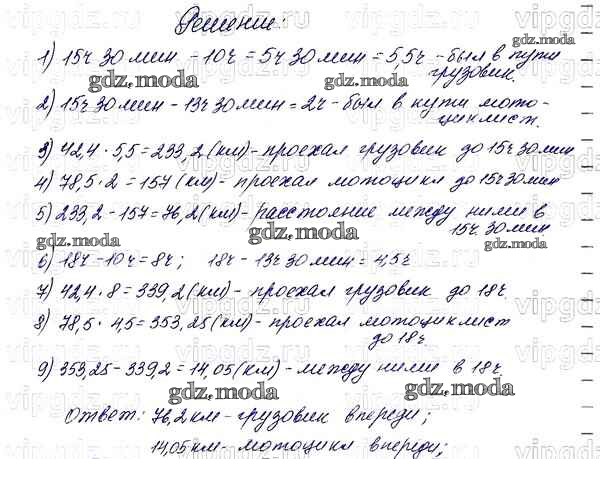 Решение:
1) 15ч 30 мин - 10ч = 5ч 30 мин = 5,5ч - был в пути
грузовик.
2) 15ч 30 мин - 13ч 30 мин = 2ч - был в пути мото-
циклист.
3) 42,4 · 5,5 = 233,2 (км) - проехал грузовик до 15ч 30 мин
4) 78,5 · 2 = 157 (км) - проехал мотоцикл до 15ч 30 мин
5) 233,2 - 157 = 76,2 (км) - расстояние между ними в
15ч 30 мин
6) 18ч - 10ч = 8ч; 18ч - 13ч 30 мин = 4,5ч
7) 42,4 · 8 = 339,2 (км) - проехал грузовик до 18ч.
8) 78,5 · 4,5 = 353,25 (км) - проехал мотоциклист
до 18ч
9) 353,25 - 339,2 = 14,05 (км) - между ними в 18ч.
Ответ: 76,2 км - грузовик впереди;
14,05 км - мотоцикл впереди;
gdz.moda
gdz.moda
gdz.moda
gdz.moda
gdz.moda
gdz.moda
gdz.moda
gdz.moda
vipgdz.ru